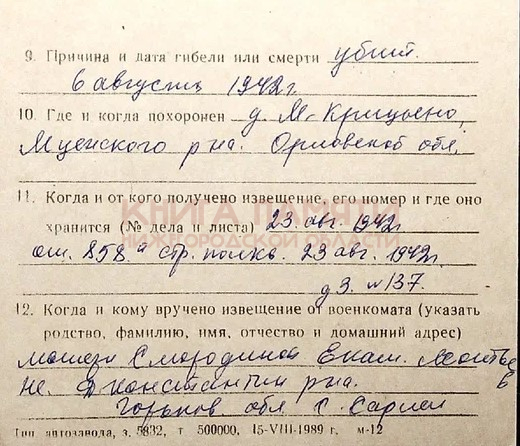 9. Причина и дата гибели или смерти убит.
6 августа 1942 г.
10. Где и когда похоронен д. М-Крицыено,
Мценского р на. Орловской обл,
11. Когда и от кого получено извещение, его номер и где оно
КНИГА ПАМЯТИ
хранится (№ дела и листа) 23 авг. 1942
НИЖЕГОРОДСКОЙ ОБЛАСТИ
от. 858 а стр. полка. 23 авг. 1942г.
д 3. N 137.
12. Когда и кому вручено извещение от военкомата (указать
родство, фамилию, имя, отчество и домашний адрес)
матери Смородиной Екат.
Дконстантин р на.
Горьков обл с.
Тип. автозавода, з. 5832, т 500000, 15-VIII-1989 г. м-12